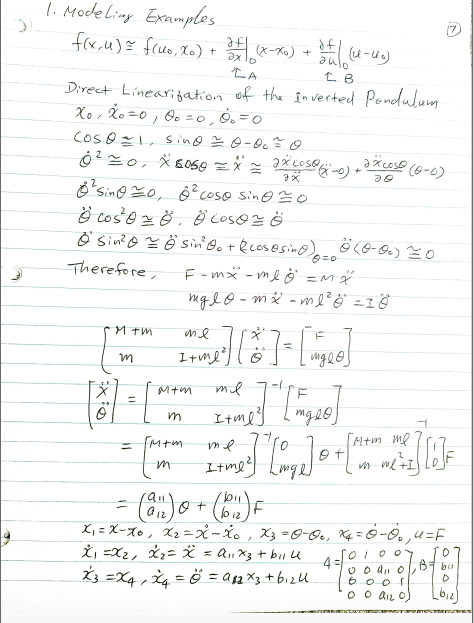 1. Modeling Examples
7
f(x,u) ≅ f(u₀,x₀) + ∂f/∂x|₀ (x-x₀) + ∂f/∂u|₀ (u-u₀)
↑A ↑B
Direct Linearization of the Inverted Pendulum
x₀, ẋ₀=0, θ₀=0, θ̇₀=0
cosθ≅1, sinθ ≅ θ-θ₀ ≅ θ
θ̇² ≅0, ẍ cosθ ≅ ẍ ≅ ∂ẍcosθ/∂ẍ (ẍ-0) + ∂ẍcosθ/∂θ (θ-0)
θ̇² sinθ ≅0, θ̇² cosθ sinθ ≅ 0
θ̈ cos²θ ≅ θ̈, θ̈ cosθ ≅ θ̈
θ̈ sin²θ ≅ θ̈ sin²θ₀ + (2cosθsinθ)_θ=0 θ̈ (θ-θ₀) ≅ 0
Therefore, F - mẍ - mlθ̈ = Mẍ
mglθ - mẍ - ml²θ̈ = Iθ̈
[M+m ml; m I+ml²] [ẍ; θ̈] = [F; mglθ]
[ẍ; θ̈] = [M+m ml; m I+ml²]⁻¹ [F; mglθ]
= [M+m ml; m I+ml²]⁻¹ [0; mgl] θ + [M+m ml; m ml²+I]⁻¹ [1; 0] F
= (a₁₁; a₁₂) θ + (b₁₁; b₁₂) F
x₁=x-x₀, x₂=ẋ-ẋ₀, x₃=θ-θ₀, x₄=θ̇-θ̇₀, u=F
ẋ₁=x₂, ẋ₂=ẍ = a₁₁x₃ + b₁₁u
ẋ₃=x₄, ẋ₄=θ̈ = a₁₂x₃ + b₁₂u
A=[0 1 0 0; 0 0 a₁₁ 0; 0 0 0 1; 0 0 a₁₂ 0], B=[0; b₁₁; 0; b₁₂]